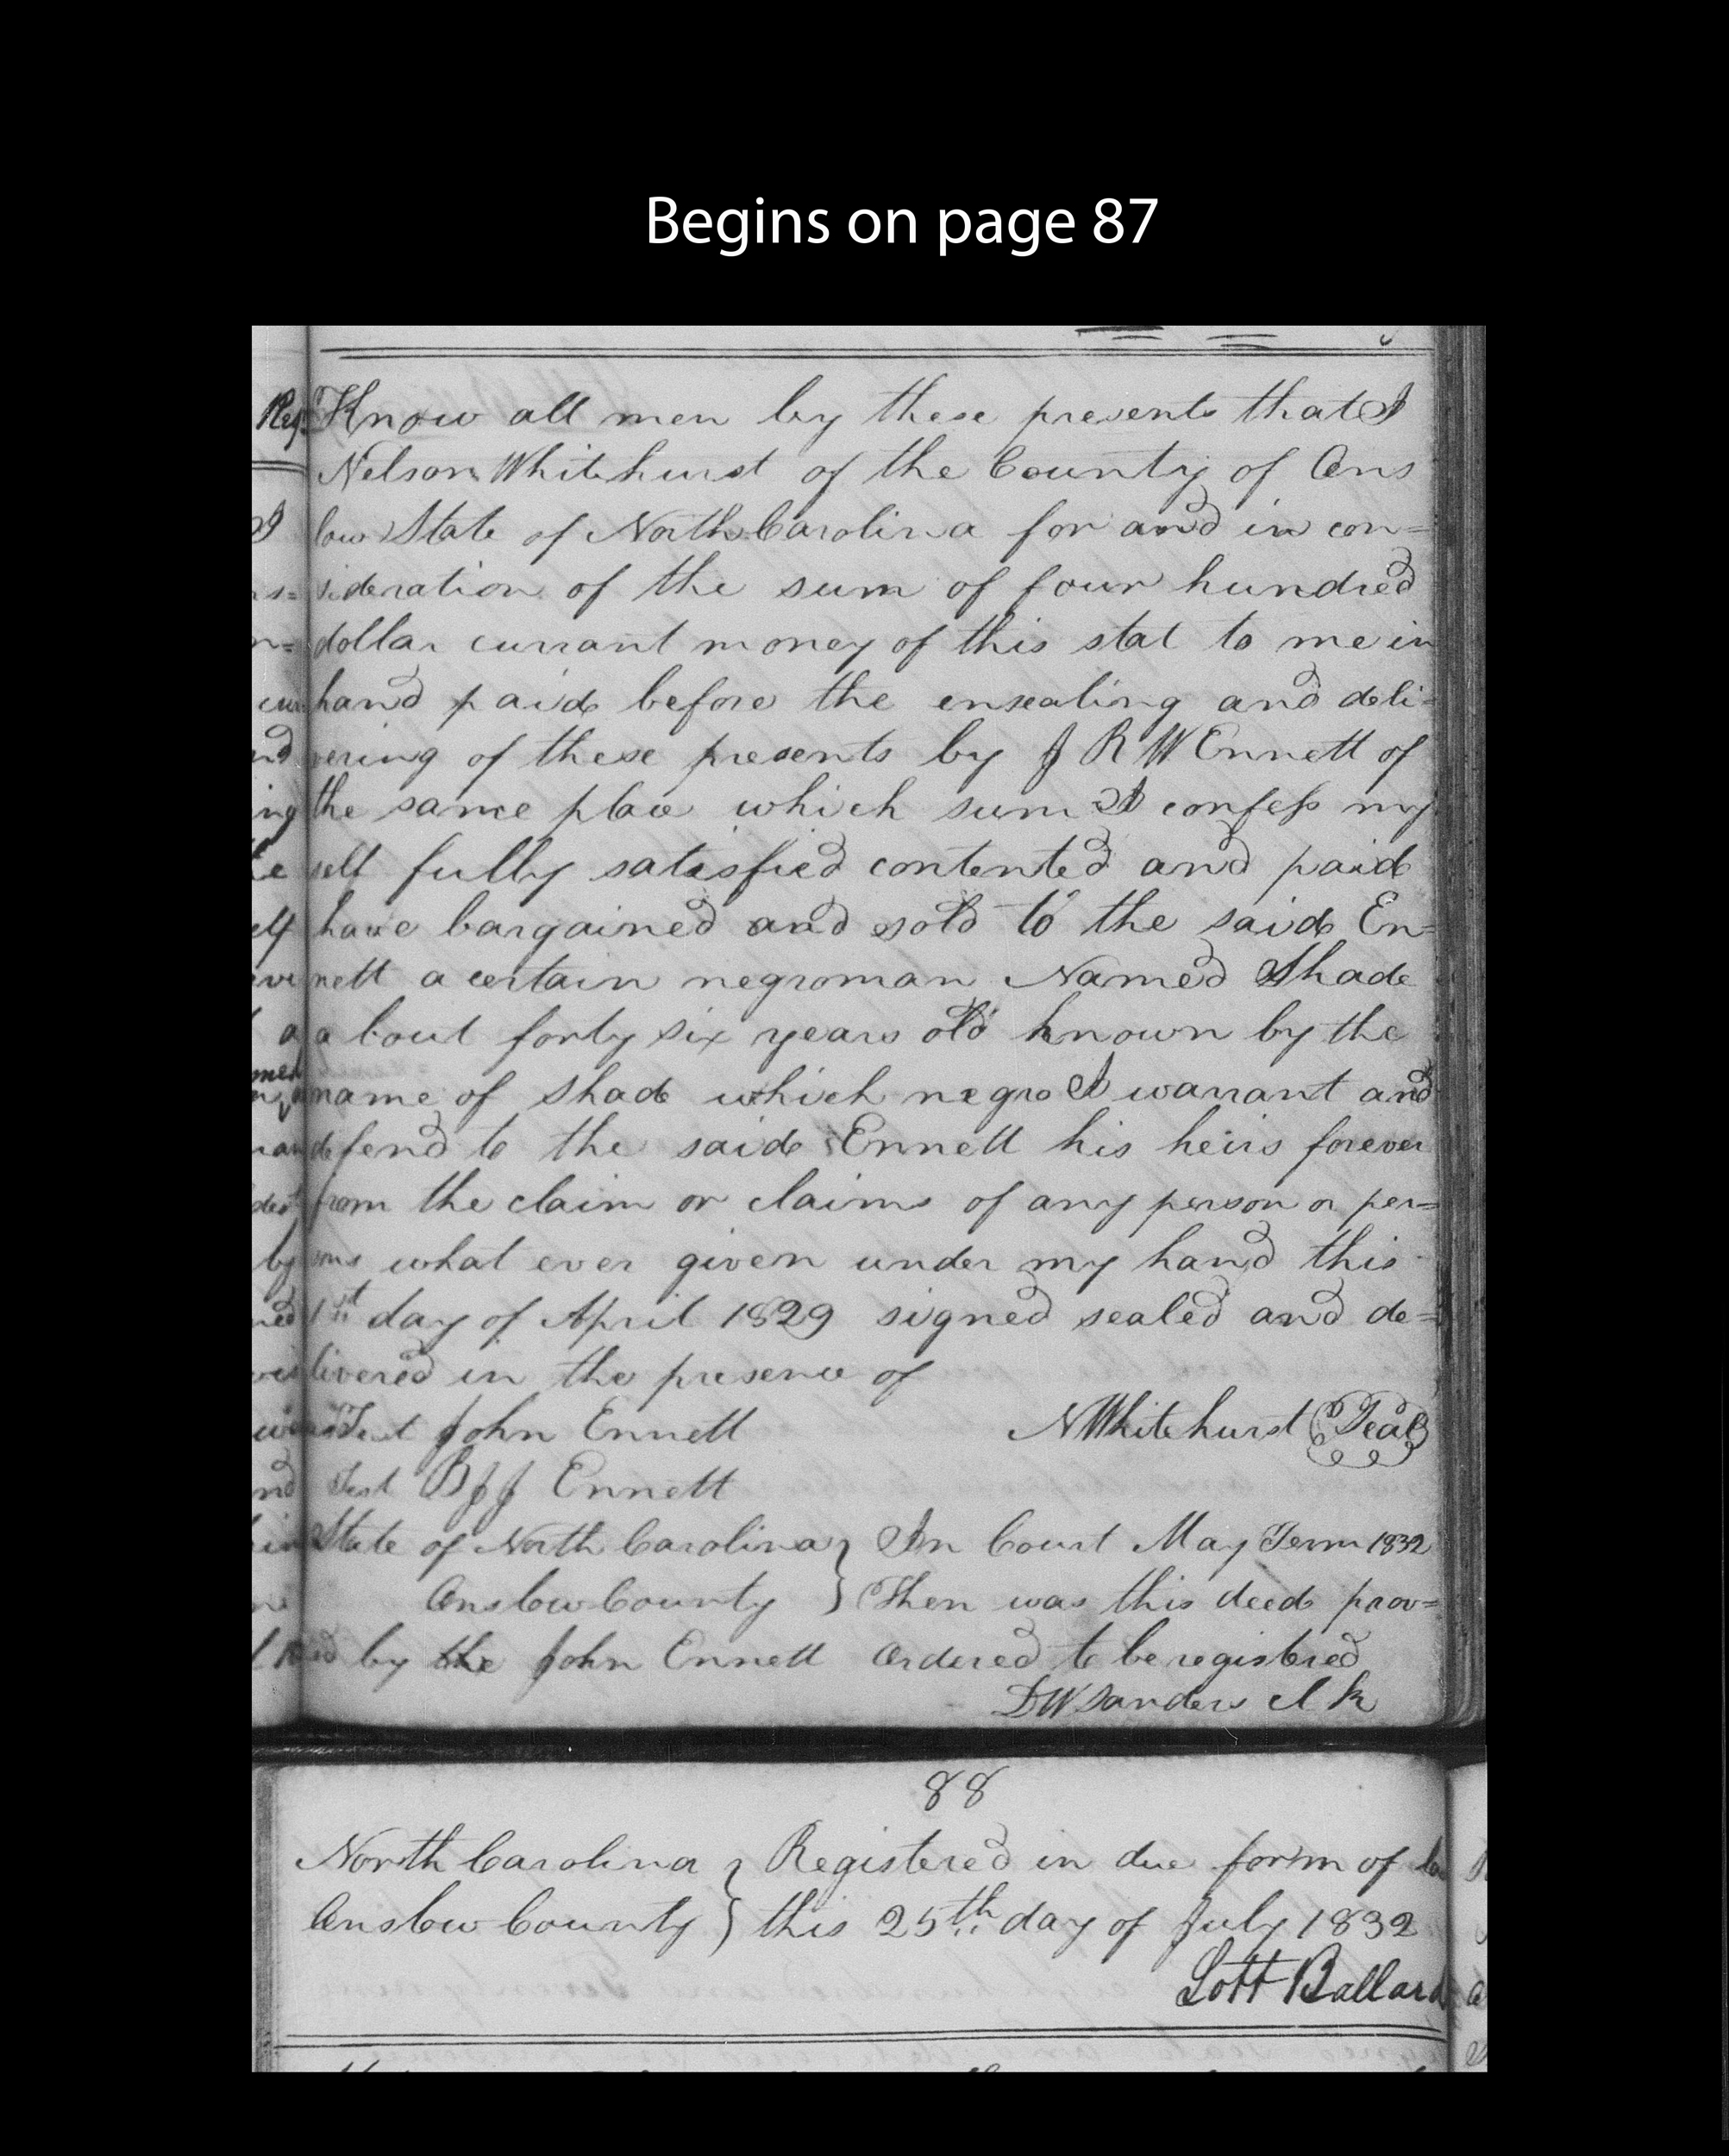 Begins on page 87
Know all men by these presents that I
Nelson Whitehurst of the County of Ons
low State of North Carolina for and in con=
sideration of the sum of four hundred
dollar currant money of this stat to me in
hand paid before the ensealing and deli=
vering of these presents by J R W Ennett of
the same place which sum I confess my
self fully satisfied contented and paid
have bargained and sold to the said En=
nett a certain negroman Named Shade
a bout forty six years old known by the
name of Shade which negro I warrant and
defend to the said Ennett his heirs forever
from the claim or claims of any person or per=
sons what ever given under my hand this
1st day of April 1829 signed sealed and de=
livered in the presence of
Test John Ennett N Whitehurst Seal
Test B J J Ennett
State of North Carolina } In Court May Term 1832
Onslow County } Then was this deed prov=
ed by the John Ennett Ordered to be registered
D W Sanders Clk
88
North Carolina } Registered in due form of
Onslow County } this 25th day of July 1832
Lott Ballard